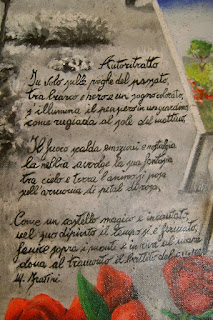 Autoritratto
In volo sulle pieghe del passato,
tra bianco e nero e un sogno colorato,
s'illumina il pensiero in un giardino
come rugiada al sole del mattino.
Il fuoco scalda emozioni e nostalgia
la nebbia avvolge la sua fantasia
tra cielo e terra l'animo si posa
nell'armonia di petali di rosa,
Come un castello magico e incantato,
nel suo dipinto il tempo si è fermato,
fenice sopra i monti e in riva al mare
dona al tramonto il
M. Bratini